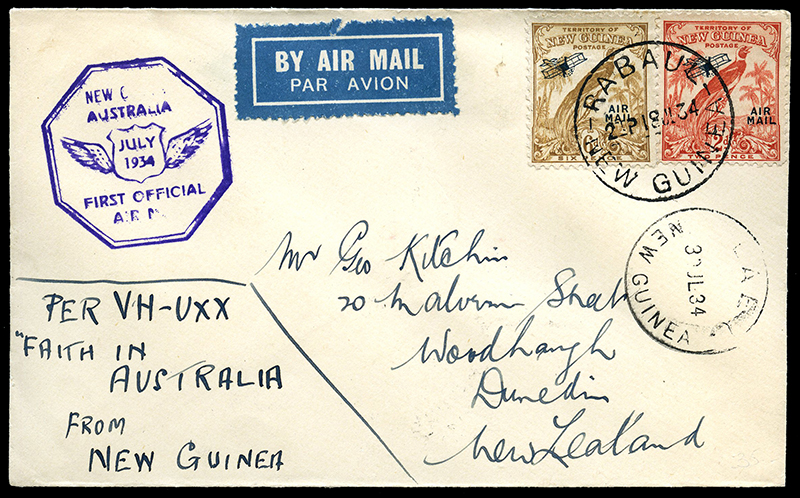 NEW
AUSTRALIA
JULY
1934
FIRST OFFICIAL
AIR M
BY AIR MAIL
PAR AVION
TERRITORY OF
NEW GUINEA
POSTAGE
AIR
MAIL
SIX PENCE
TERRITORY OF
NEW GUINEA
POSTAGE
AIR
MAIL
PENCE
RABAUL
34
NEW GUINEA
LAE
JL 34
NEW GUINEA
Mr Geo Kitchin
20 Malvern Street
Woodhaugh
Dunedin
New Zealand
PER VH-UXX
"FAITH IN
AUSTRALIA
FROM
NEW GUINEA